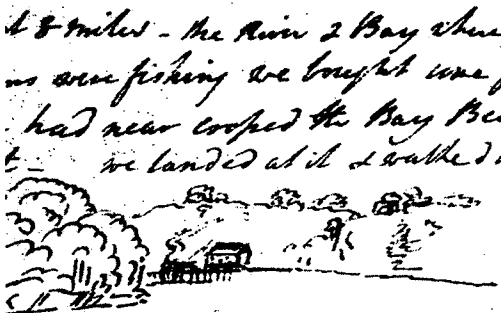 8 miles - the River & Bay where
were fishing we bought some
had near crossed the Bay
we landed at it & walked